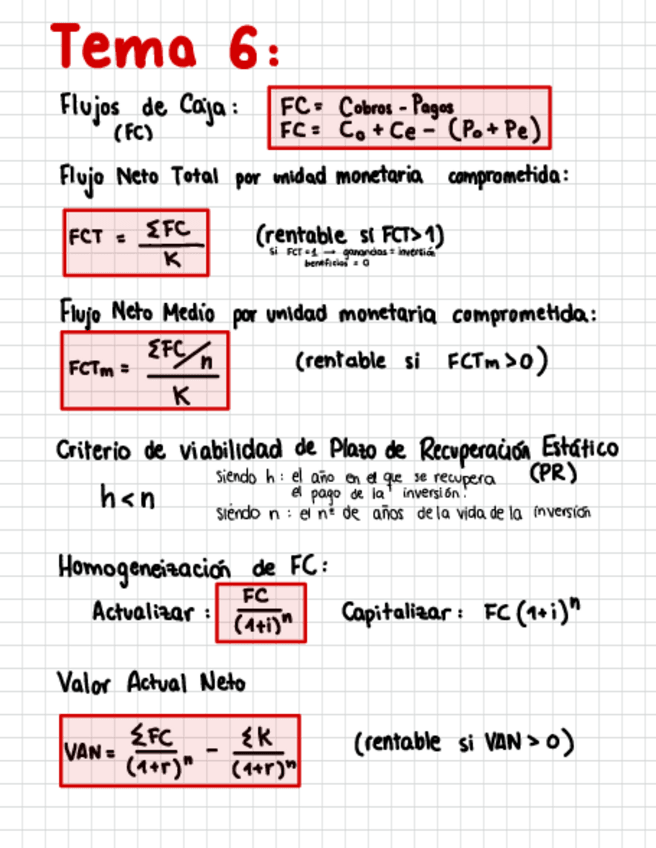 Tema 6:
Flujos de Caja: FC = Cobros - Pagos
(FC) FC = Co + Ce - (Po + Pe)
Flujo Neto Total por unidad monetaria comprometida:
FCT = ΣFC / K (rentable si FCT>1)
si FCT=1 → ganancias = inversión
beneficios = 0
Flujo Neto Medio por unidad monetaria comprometida:
FCTm = ΣFC/n / K (rentable si FCTm>0)
Criterio de viabilidad de Plazo de Recuperación Estático
(PR)
h<n siendo h: el año en el que se recupera
el pago de la inversión.
siendo n: el nº de años de la vida de la inversión
Homogeneización de FC:
Actualizar: FC / (1+i)ⁿ Capitalizar: FC(1+i)ⁿ
Valor Actual Neto
VAN = ΣFC / (1+r)ⁿ - ΣK / (1+r)ⁿ (rentable si VAN > 0)